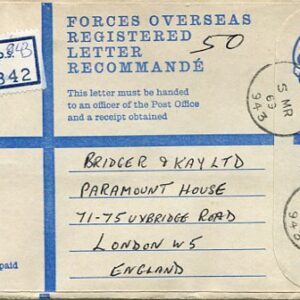 FORCES OVERSEAS
REGISTERED
LETTER
RECOMMANDÉ
50
This letter must be handed
to an officer of the Post Office
and a receipt obtained
943
342
5 MR
69
943
BRIDGER & KAY LTD
PARAMOUNT HOUSE
71-75 UXBRIDGE ROAD
LONDON W5
ENGLAND
943
paid